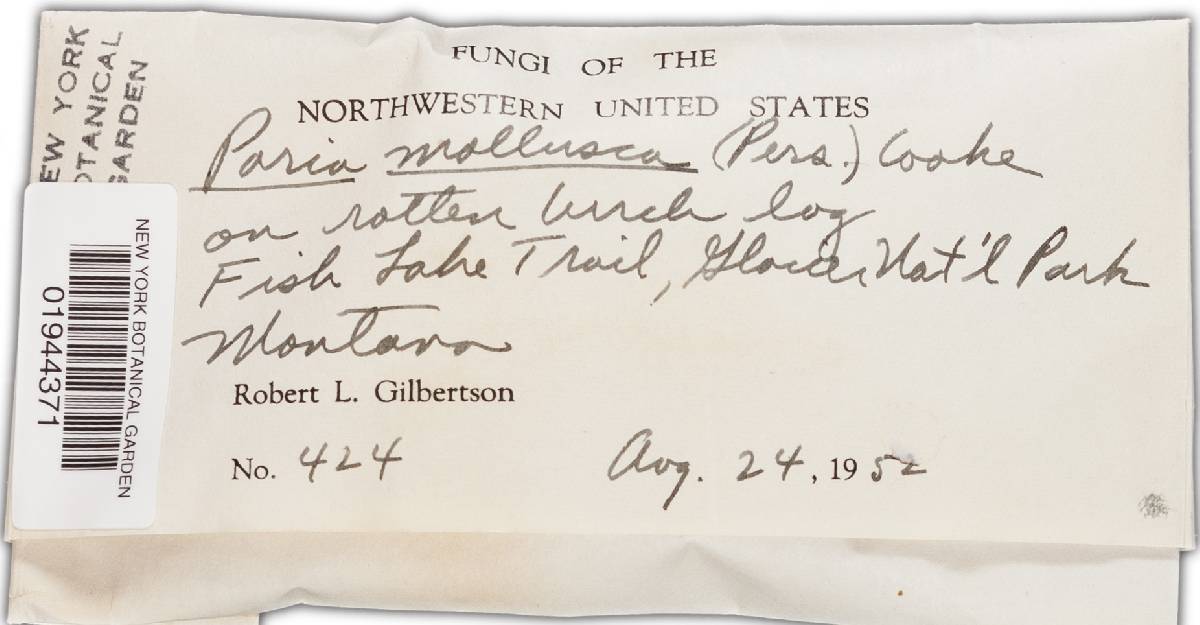 NEW YORK
BOTANICAL
GARDEN
FUNGI OF THE
NORTHWESTERN UNITED STATES
Poria mollusca (Pers.) Cooke
on rotten birch log
Fish Lake Trail, Glacier Nat'l Park
Montana
Robert L. Gilbertson
No. 424 Aug. 24, 1952
NEW YORK BOTANICAL GARDEN
01944371